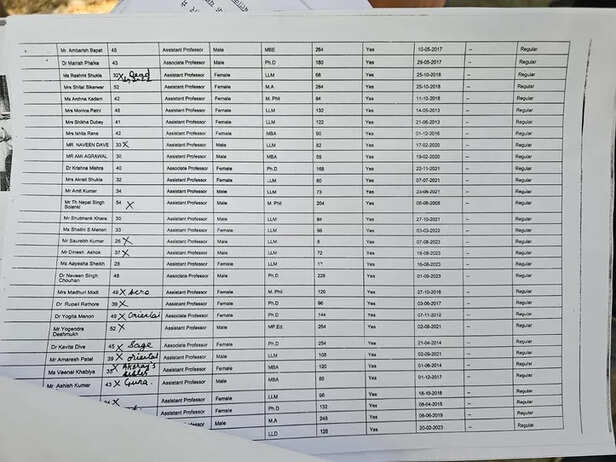 Mr. Ambarish Bapat 48 Assistant Professor Male MBE 264 Yes 10-05-2017 -- Regular
Dr Manish Phalke 43 Associate Professor Male Ph.D 180 Yes 29-05-2017 -- Regular
Ms Rashmi Shukla 32 X Dead Assistant Professor Female LLM 68 Yes 25-10-2018 -- Regular
Mrs Shital Sikarwar 52 Assistant Professor Female M.A 264 Yes 25-10-2018 -- Regular
Ms Archna Kadam 42 Assistant Professor Female M. Phil 84 Yes 11-10-2018 -- Regular
Mrs Monika Patel 48 Assistant Professor Female LLM 132 Yes 14-05-2013 -- Regular
Mrs Shikha Dubey 41 Assistant Professor Female LLM 122 Yes 21-06-2013 -- Regular
Mrs Ishita Rana 42 Assistant Professor Female MBA 90 Yes 01-12-2016 -- Regular
MR. NAVEEN DAVE 33 X Assistant Professor Male LLM 82 Yes 17-02-2020 -- Regular
MR AMI AGRAWAL 30 Assistant Professor Male MBA 59 Yes 19-02-2020 -- Regular
Dr Krishna Mishra 40 Associate Professor Female Ph.D 168 Yes 22-11-2021 -- Regular
Mrs Akrati Shukla 32 Assistant Professor Female LLM 80 Yes 07-07-2021 -- Regular
Mr Amit Kumar 34 Assistant Professor Male LLM 73 Yes -- Regular
Mr Th Nepal Singh Solanki 54 X Assistant Professor Male M. Phil 204 Yes -- Regular
Mr Shubhank Khare 30 Assistant Professor Male LLM 84 Yes 27-10-2021 -- Regular
Ms Shalini S Menon 33 Assistant Professor Female LLM 96 Yes 03-03-2022 -- Regular
Mr Saurabh Kumar 26 X Assistant Professor Male LLM Yes 07-08-2023 -- Regular
Mr Dinesh Ashok 37 X Assistant Professor Male LLM 72 Yes -- Regular
Ms Aayesha Sheikh 28 Assistant Professor Female LLM Yes 16-08-2023 -- Regular
Dr Naveen Singh Chouhan 48 Associate Professor Male Ph.D. 228 Yes 01-09-2023 -- Regular
Mrs Madhuri Modi 49 X Assistant Professor Female M. Phil 120 Yes 27-10-2016 -- Regular
Dr Rupali Rathore 39 X Assistant Professor Female Ph.D 96 Yes 03-06-2017 -- Regular
Dr Yogita Menon 49 X Oriental Associate Professor Female Ph.D 144 Yes 07-11-2012 -- Regular
Mr Yogendra Deshmukh 52 X Assistant Professor Male MP.Ed. 254 Yes 02-08-2021 -- Regular
Dr Kavita Dive 45 X Sage Associate Professor Female Ph.D. 254 Yes 21-04-2014 -- Regular
Mr Amaresh Patel 39 X Oriental Assistant Professor Male LLM 108 Yes 02-09-2021 -- Regular
Ms Veenal Khabiya 35 X Assistant Professor Female MBA 120 Yes 01-06-2014 -- Regular
Mr Ashish Kumar 43 X Guna. Assistant Professor Male MBA 80 Yes 01-12-2017 -- Regular
X Assistant Professor Female LLM 96 Yes 16-10-2018 -- Regular
Assistant Professor Female Ph.D 132 Yes 08-04-2015 -- Regular
Assistant Professor Male M.A 248 Yes 06-06-2019 -- Regular
Assistant Professor Male LLD 128 Yes 20-02-2023 -- Regular